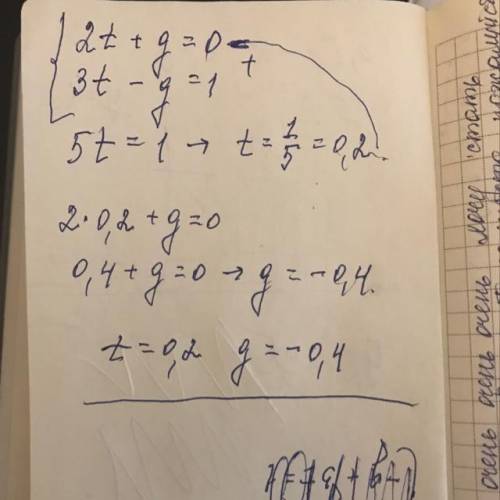 2t + g = 0
3t - g = 1
+
5t = 1 → t = 1/5 = 0,2.
2·0,2 + g = 0
0,4 + g = 0 → g = -0,4.
t = 0,2 g = -0,4
очень очень очень могу стать